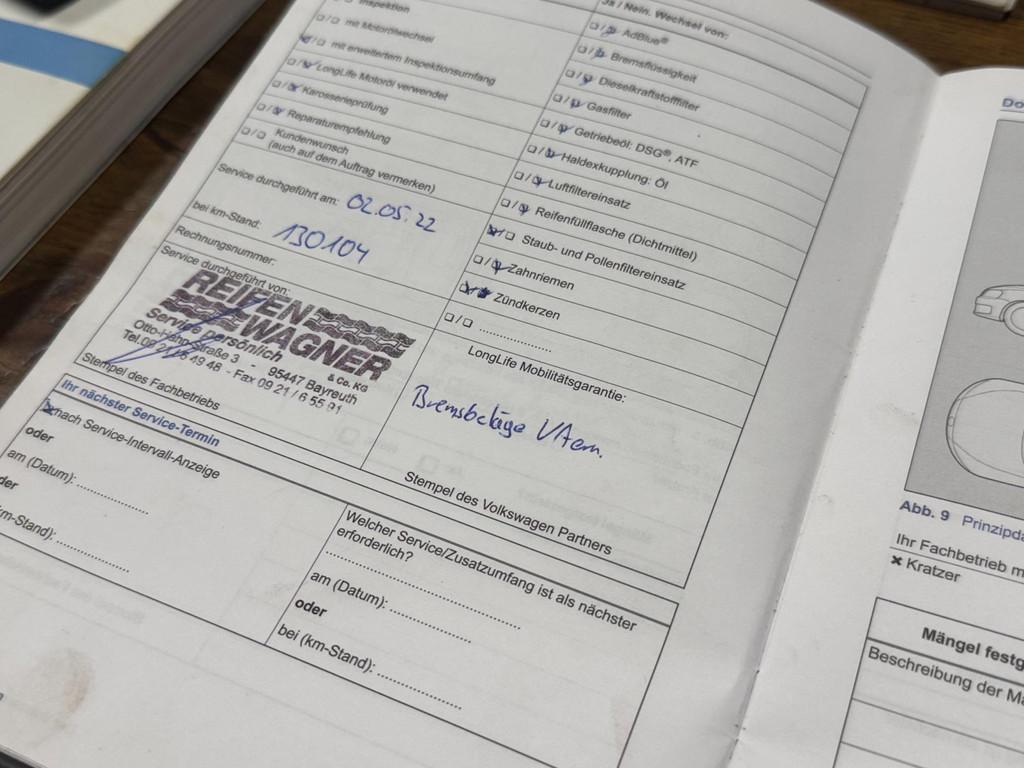 Inspektion
mit Motorölwechsel
mit erweitertem Inspektionsumfang
LongLife Motoröl verwendet
Karosserieprüfung
Reparaturempfehlung
Kundenwunsch
(auch auf dem Auftrag vermerken)
Service durchgeführt am: 02.05.22
bei km-Stand: 130104
Rechnungsnummer:
Service durchgeführt von:
REIFEN
WAGNER
& Co. KG
Service persönlich
Otto-Hahn-Straße 3 - 95447 Bayreuth
49 48 - Fax 09 21 / 6 55 91
Stempel des Fachbetriebs
Ja / Nein. Wechsel von:
AdBlue®
Bremsflüssigkeit
Dieselkraftstofffilter
Gasfilter
Getriebeöl: DSG®, ATF
Haldexkupplung: Öl
Luftfiltereinsatz
Reifenfüllflasche (Dichtmittel)
Staub- und Pollenfiltereinsatz
Zahnriemen
Zündkerzen
LongLife Mobilitätsgarantie:
Bremsbeläge
Stempel des Volkswagen Partners
Ihr nächster Service-Termin
nach Service-Intervall-Anzeige
oder
am (Datum):
oder
km-Stand):
Welcher Service/Zusatzumfang ist als nächster
erforderlich?
am (Datum):
oder
bei (km-Stand):
Do
Abb. 9 Prinzipda
Ihr Fachbetrieb m
× Kratzer
Mängel festg
Beschreibung der Mä